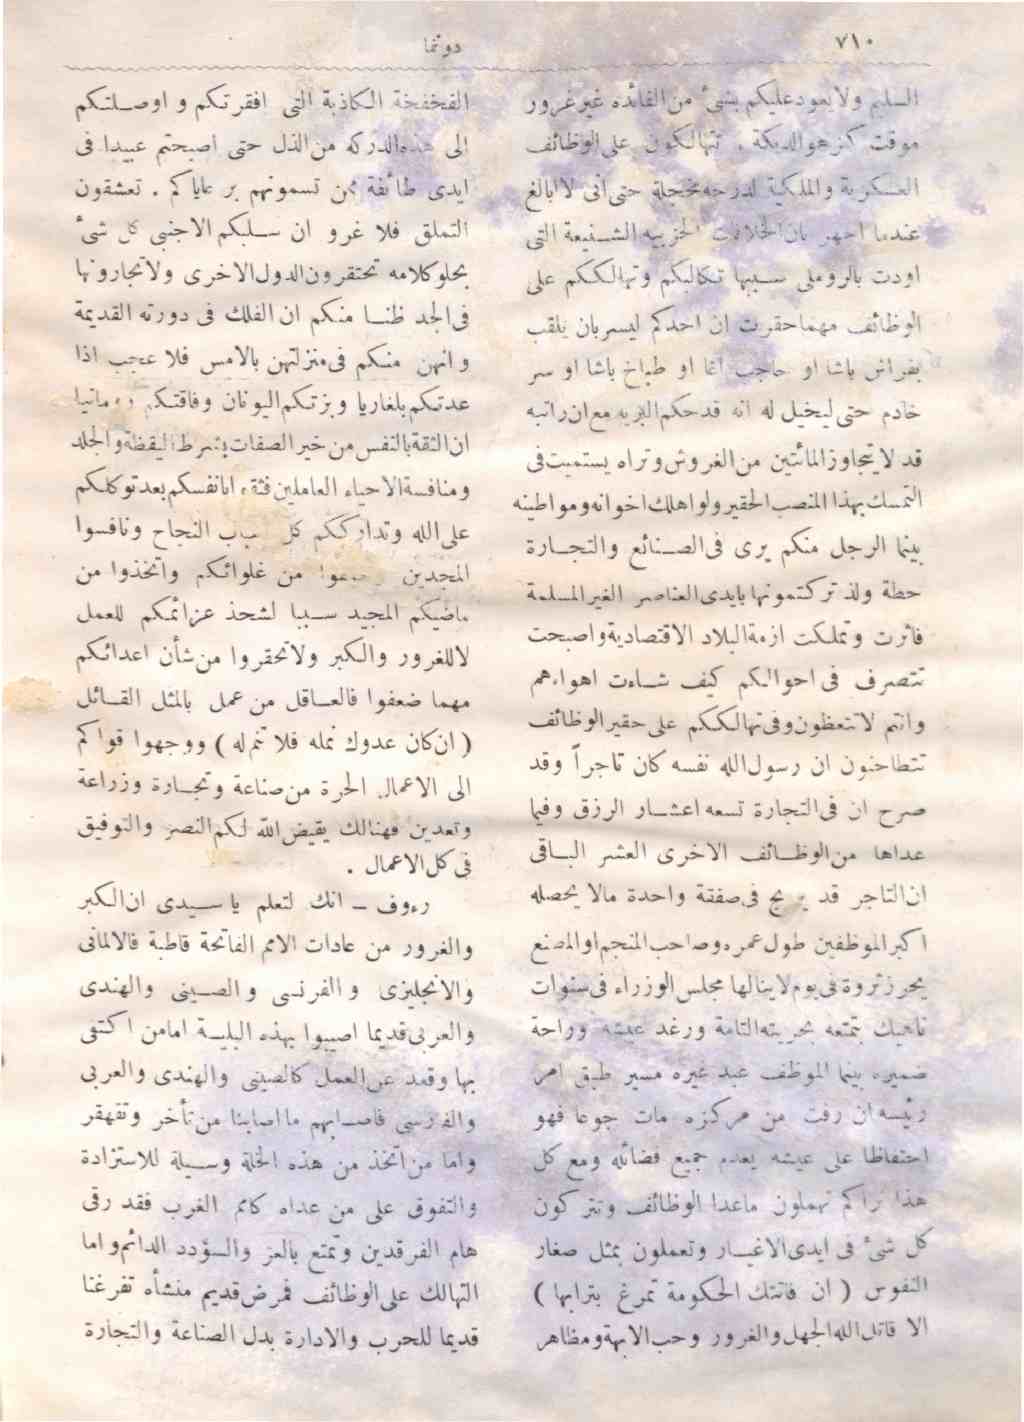 ٧١٠
دونما
السليم ولا يعود عليكم بشئ من الفائده غير غرور
موقت كزهو الديكة . تتهالكون على الوظائف
العسكرية والملكية لدرجه مخجلة حتى انى لا ابالغ
عندما اجهر بان الخلافات الحزبيه الشنيعة التى
اودت بالروملى سببها تكالبكم وتهالككم على
الوظائف مهما حقرت ان احدكم ليسر بان يلقب
بفراش باشا او حاجب اغا او طباخ باشا او سر
خادم حتى ليخيل له انه قد حكم البريه مع ان راتبه
قد لا يتجاوز المائتين من الغروش وتراه يستميت فى
التمسك بهذا المنصب الحقير ولو اهلك اخوانه ومواطنيه
بينما الرجل منكم يرى فى الصنائع والتجارة
حطة ولذ تركتمونها بايدى العناصر الغير المسلمة
فاثرت وتملكت ازمة البلاد الاقتصادية واصبحت
تتصرف فى احوالكم كيف شاءت اهواءهم
وانتم لا تتعظون وفى تهالككم على حقير الوظائف
تتطاحنون ان رسول الله نفسه كان تاجراً وقد
صرح ان فى التجارة تسعه اعشار الرزق وفيما
عداها من الوظائف الاخرى العشر الباقى
ان التاجر قد يربح فى صفقة واحدة مالا يحصله
اكبر الموظفين طول عمره وصاحب المنجم او المصنع
يحرز ثروة فى يوم لا ينالها مجلس الوزراء فى سنوات
ناهيك بتمتعه بحريته التامة ورغد عيشه وراحة
ضميره بينما الموظف عبد غيره مسير طبق امر
رئيسه ان رفت من مركزه مات جوعا فهو
احتفاظا على عيشه يعدم جميع فضائله ومع كل
هذا نراكم تهملون ماعدا الوظائف وتتركون
كل شئ فى ايدى الاغيار وتعملون بمثل صغار
النفوس ( ان فاتتك الحكومة تمرغ بترابها )
الا قاتل الله الجهل والغرور وحب الابهة ومظاهر
الفخفخة الكاذبة التى افقرتكم و اوصلتكم
الى هذه الدركه من الذل حتى اصبحتم عبيدا فى
ايدى طائفة ممن تسمونهم برعاياكم . تعشقون
التملق فلا غرو ان سلبكم الاجنبى كل شئ
بحلو كلامه تحتقرون الدول الاخرى ولا تجارونها
فى الجد ظنا منكم ان الفلك فى دورته القديمة
وانهن منكم فى منزلتهن بالامس فلا عجب اذا
عدتكم بلغاريا وبزتكم اليونان وفاقتكم رومانيا
ان الثقة بالنفس من خير الصفات بشرط اليقظة والجلد
ومنافسة الاحياء العاملين فثقوا بانفسكم بعد توكلكم
على الله وتدارككم كل اسباب النجاح ونافسوا
المجدين من غلوائكم واتخذوا من
ماضيكم المجيد سببا لشحذ عزائمكم للعمل
لا للغرور والكبر ولا تحقروا من شأن اعدائكم
مهما ضعفوا فالعاقل من عمل بالمثل القائل
( ان كان عدوك نمله فلا تنم له ) ووجهوا قواكم
الى الاعمال الحرة من صناعة وتجارة وزراعة
وتعدين فهنالك يقيض الله لكم النصر والتوفيق
فى كل الاعمال .
رءوف – انك لتعلم يا سيدى ان الكبر
والغرور من عادات الامم الفاتحة قاطبة فالالمانى
والانجليزى والفرنسى والصينى والهندى
والعربى قديما اصيبوا بهذه البلية اما من اكتفى
بها وقعد عن العمل كالصينى والهندى والعربى
والفارسى فاصابهم ما اصابنا من تأخر وتقهقر
واما من اتخذ من هذه الخلة وسيلة للاستزادة
والتفوق على من عداه كامم الغرب فقد رقى
هام الفرقدين وتمتع بالعز والسؤدد الدائم واما
التهالك على الوظائف فمرض قديم منشأه تفرغنا
قديما للحرب والادارة بدل الصناعة والتجارة